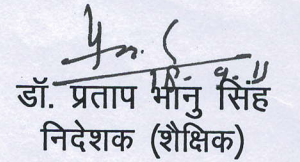 डॉ. प्रताप भानु सिंह
निदेशक (शैक्षिक)